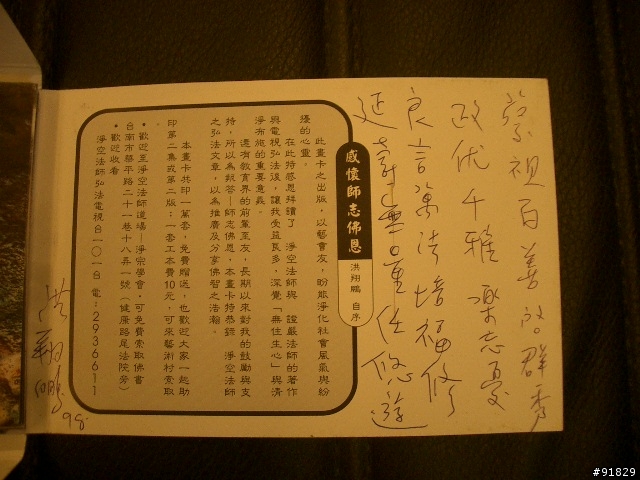 百善啟群秀
政优千雅樂忘憂
良言萬法培福修
延壽無量任悠遊
感懷師志佛恩
洪翔鵬 自序
此畫卡之出版，以藝會友，盼能淨化社會風氣與紛
擾的心靈。
在此特感恩拜讀了 淨空法師與 證嚴法師的著作
與電視弘法後，讓我受益良多，深覺「無住生心」與清
淨布施的重要意義。
還有教育界的前輩至友，長期以來對我的鼓勵與支
持，所以為報答—師志佛恩，本畫卡特恭錄 淨空法師
之弘法文章，以為推廣及分享佛智之浩瀚。
本畫卡共印一萬套，免費贈送，也歡迎大家一起助
印第二集或第二版：一套工本費10元，可來藝術村索取
•歡迎至淨空法師道場—淨宗學會，可免費索取佛書
台南市華平路二十一巷十八弄一號（健康路尾法院旁）
•歡迎收看
淨空法師弘法電視台一○一台 電：2936611
洪翔鵬 98.
#91829